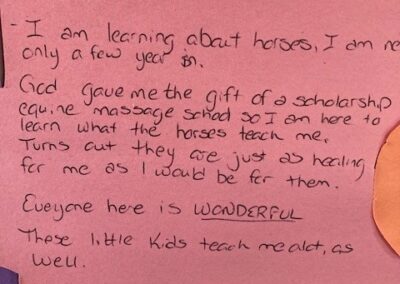 - I am learning about horses, I am ne
only a few year in.
God gave me the gift of a scholarship
equine massage school so I am here to
learn what the horses teach me.
Turns out they are just as healing
for me as I would be for them.
Everyone here is WONDERFUL
These little kids teach me alot, as
well.